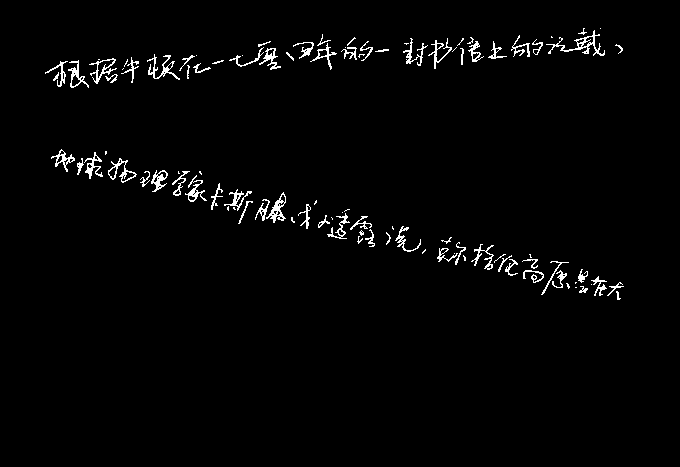 根据牛顿在一七零四年的一封书信上的记载、
地球物理学家卡斯腾.戈透露说,莫尔格伦高原是在大